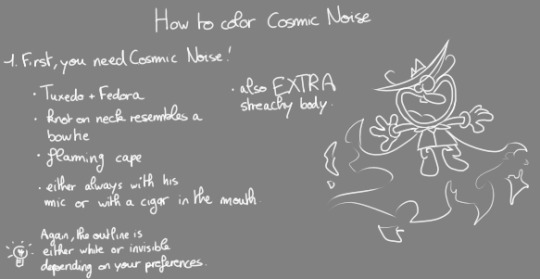 How to color Cosmic Noise
1. First, you need Cosmic Noise!
• Tuxedo + Fedora
• Knot on neck resembles a
bowtie
• flaming cape
• either always with his
mic or with a cigar in the mouth.
• also EXTRA
streachy body.
Again, the outline is
either white or invisible
depending on your preferences.